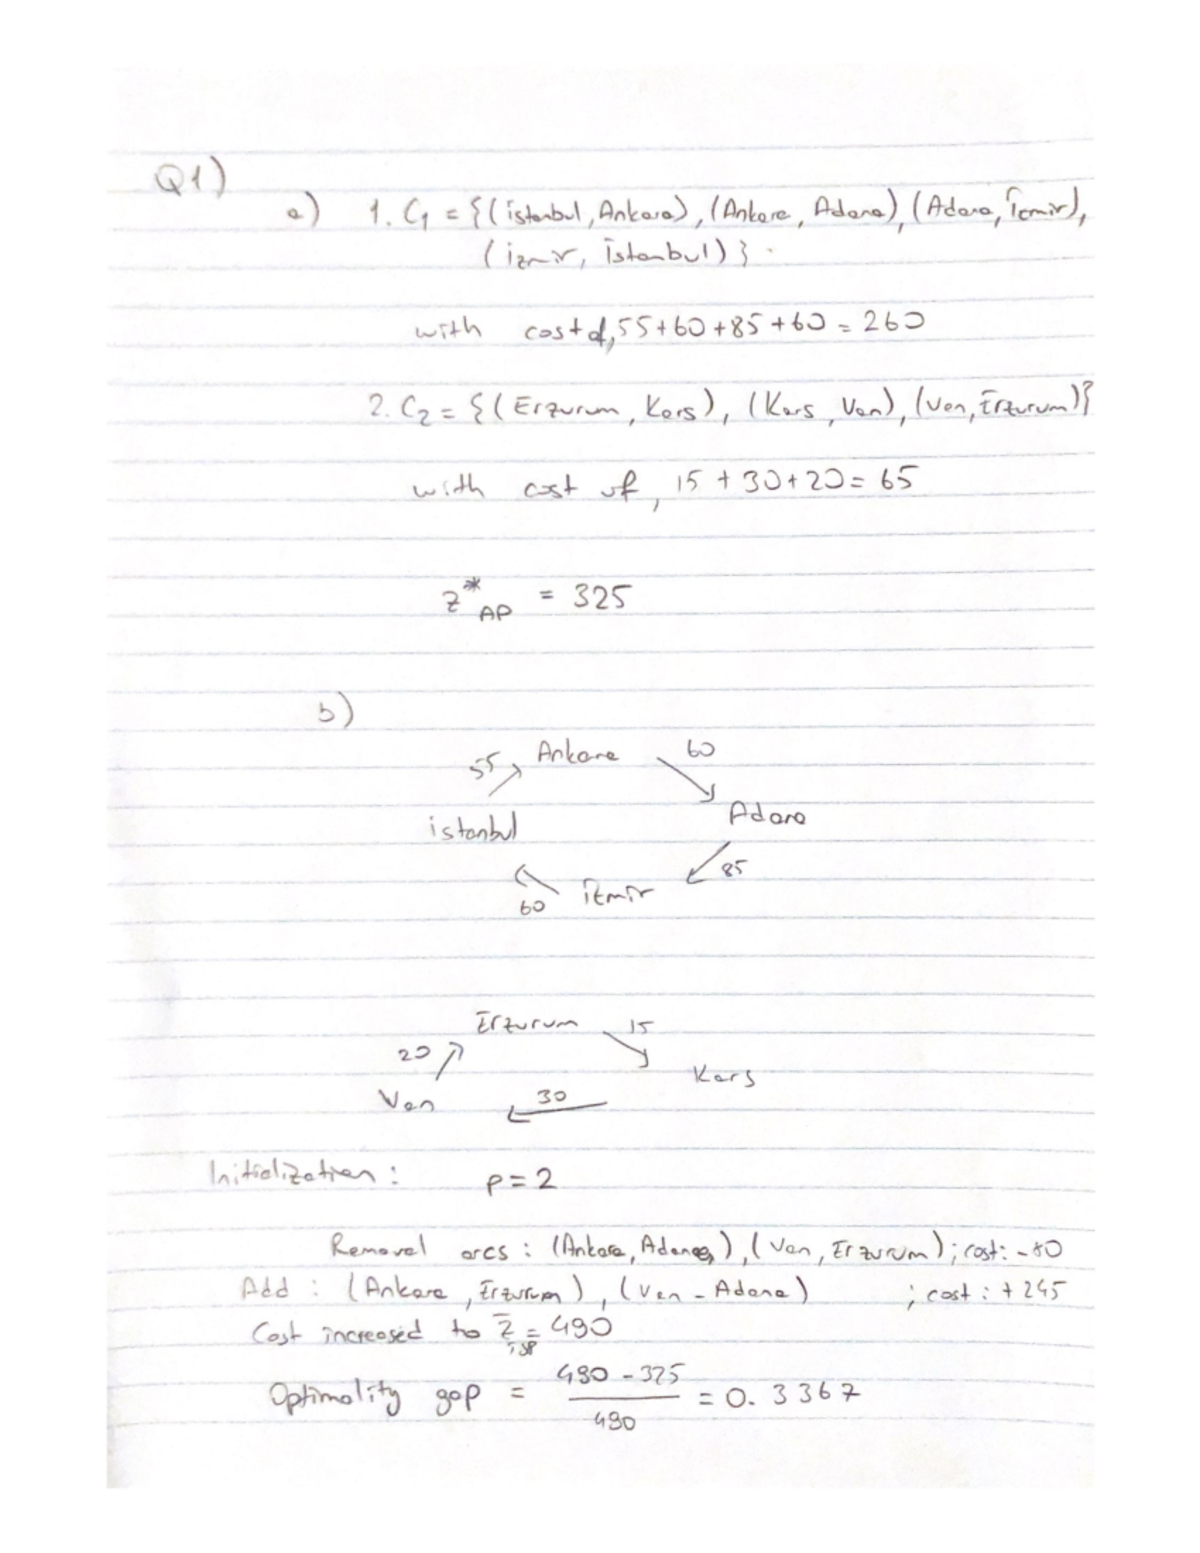 Q1)
a) 1. C1 = {(istanbul, Ankara), (Ankara, Adana), (Adana, İzmir),
(izmir, İstanbul)}.
with cost of, 55+60+85+60 = 260
2. C2 = {(Erzurum, Kars), (Kars, Van), (Van, Erzurum)}
with cost of, 15 + 30 + 20 = 65
z*AP = 325
b)
55 Ankara 60
istanbul Adana
60 izmir 85
Erzurum 15
20 Kars
Van 30
Initialization: p = 2
Removal arcs : (Ankara, Adana), (Van, Erzurum); cost: -80
Add : (Ankara, Erzurum), (Van - Adana) ; cost : + 245
Cost increased to z̄TSP = 490
Optimality gap = 490 - 325 / 490 = 0.3367